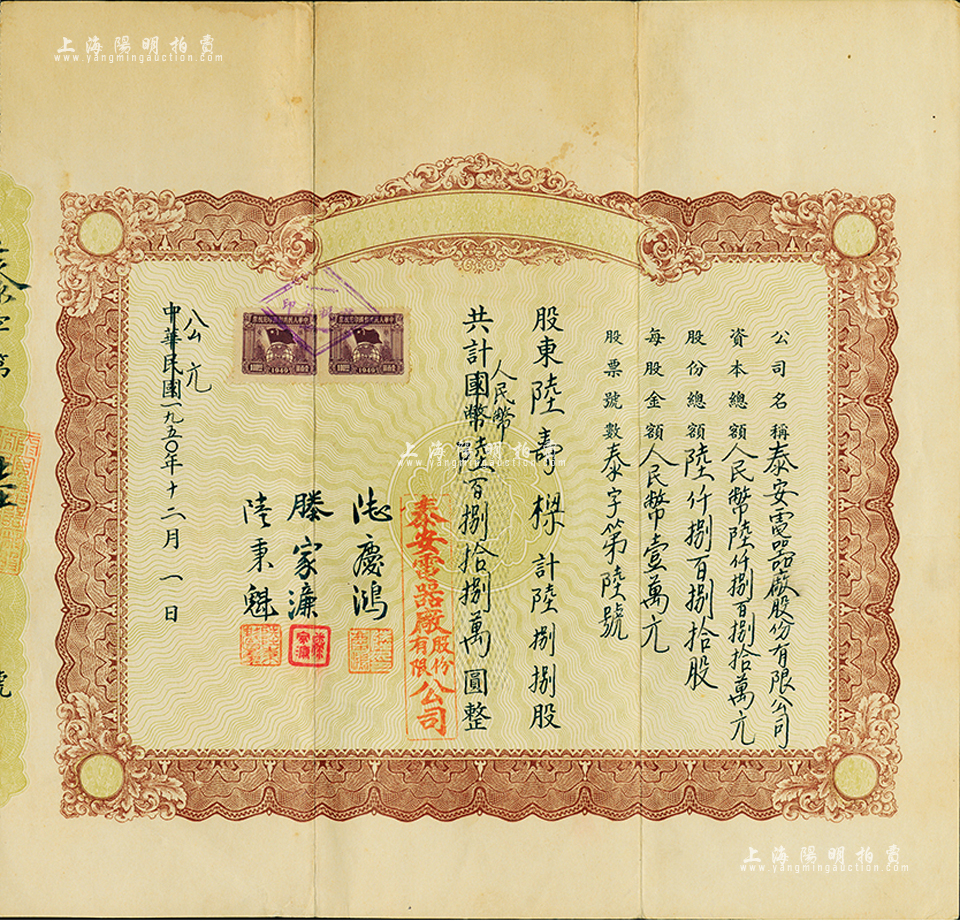 上海陽明拍賣
www.yangmingauction.com
公司名稱泰安電器廠股份有限公司
資本總額人民幣陸仟捌百捌拾萬元
股份總額陸仟捌百捌拾股
每股金額人民幣壹萬元
股票號數泰字第陸號
股東陸壽樑計陸捌捌股
人民幣
共計國幣陸百捌拾捌萬圓整
泰安電器廠股份有限公司
慶鴻
滕家濂
陸秉魁
1949
1949
公元
中華民國一九五〇年十二月一日
泰字第
號
上海陽明拍賣
www.yangmingauction.com
上海陽明拍賣
www.yangmingauction.com